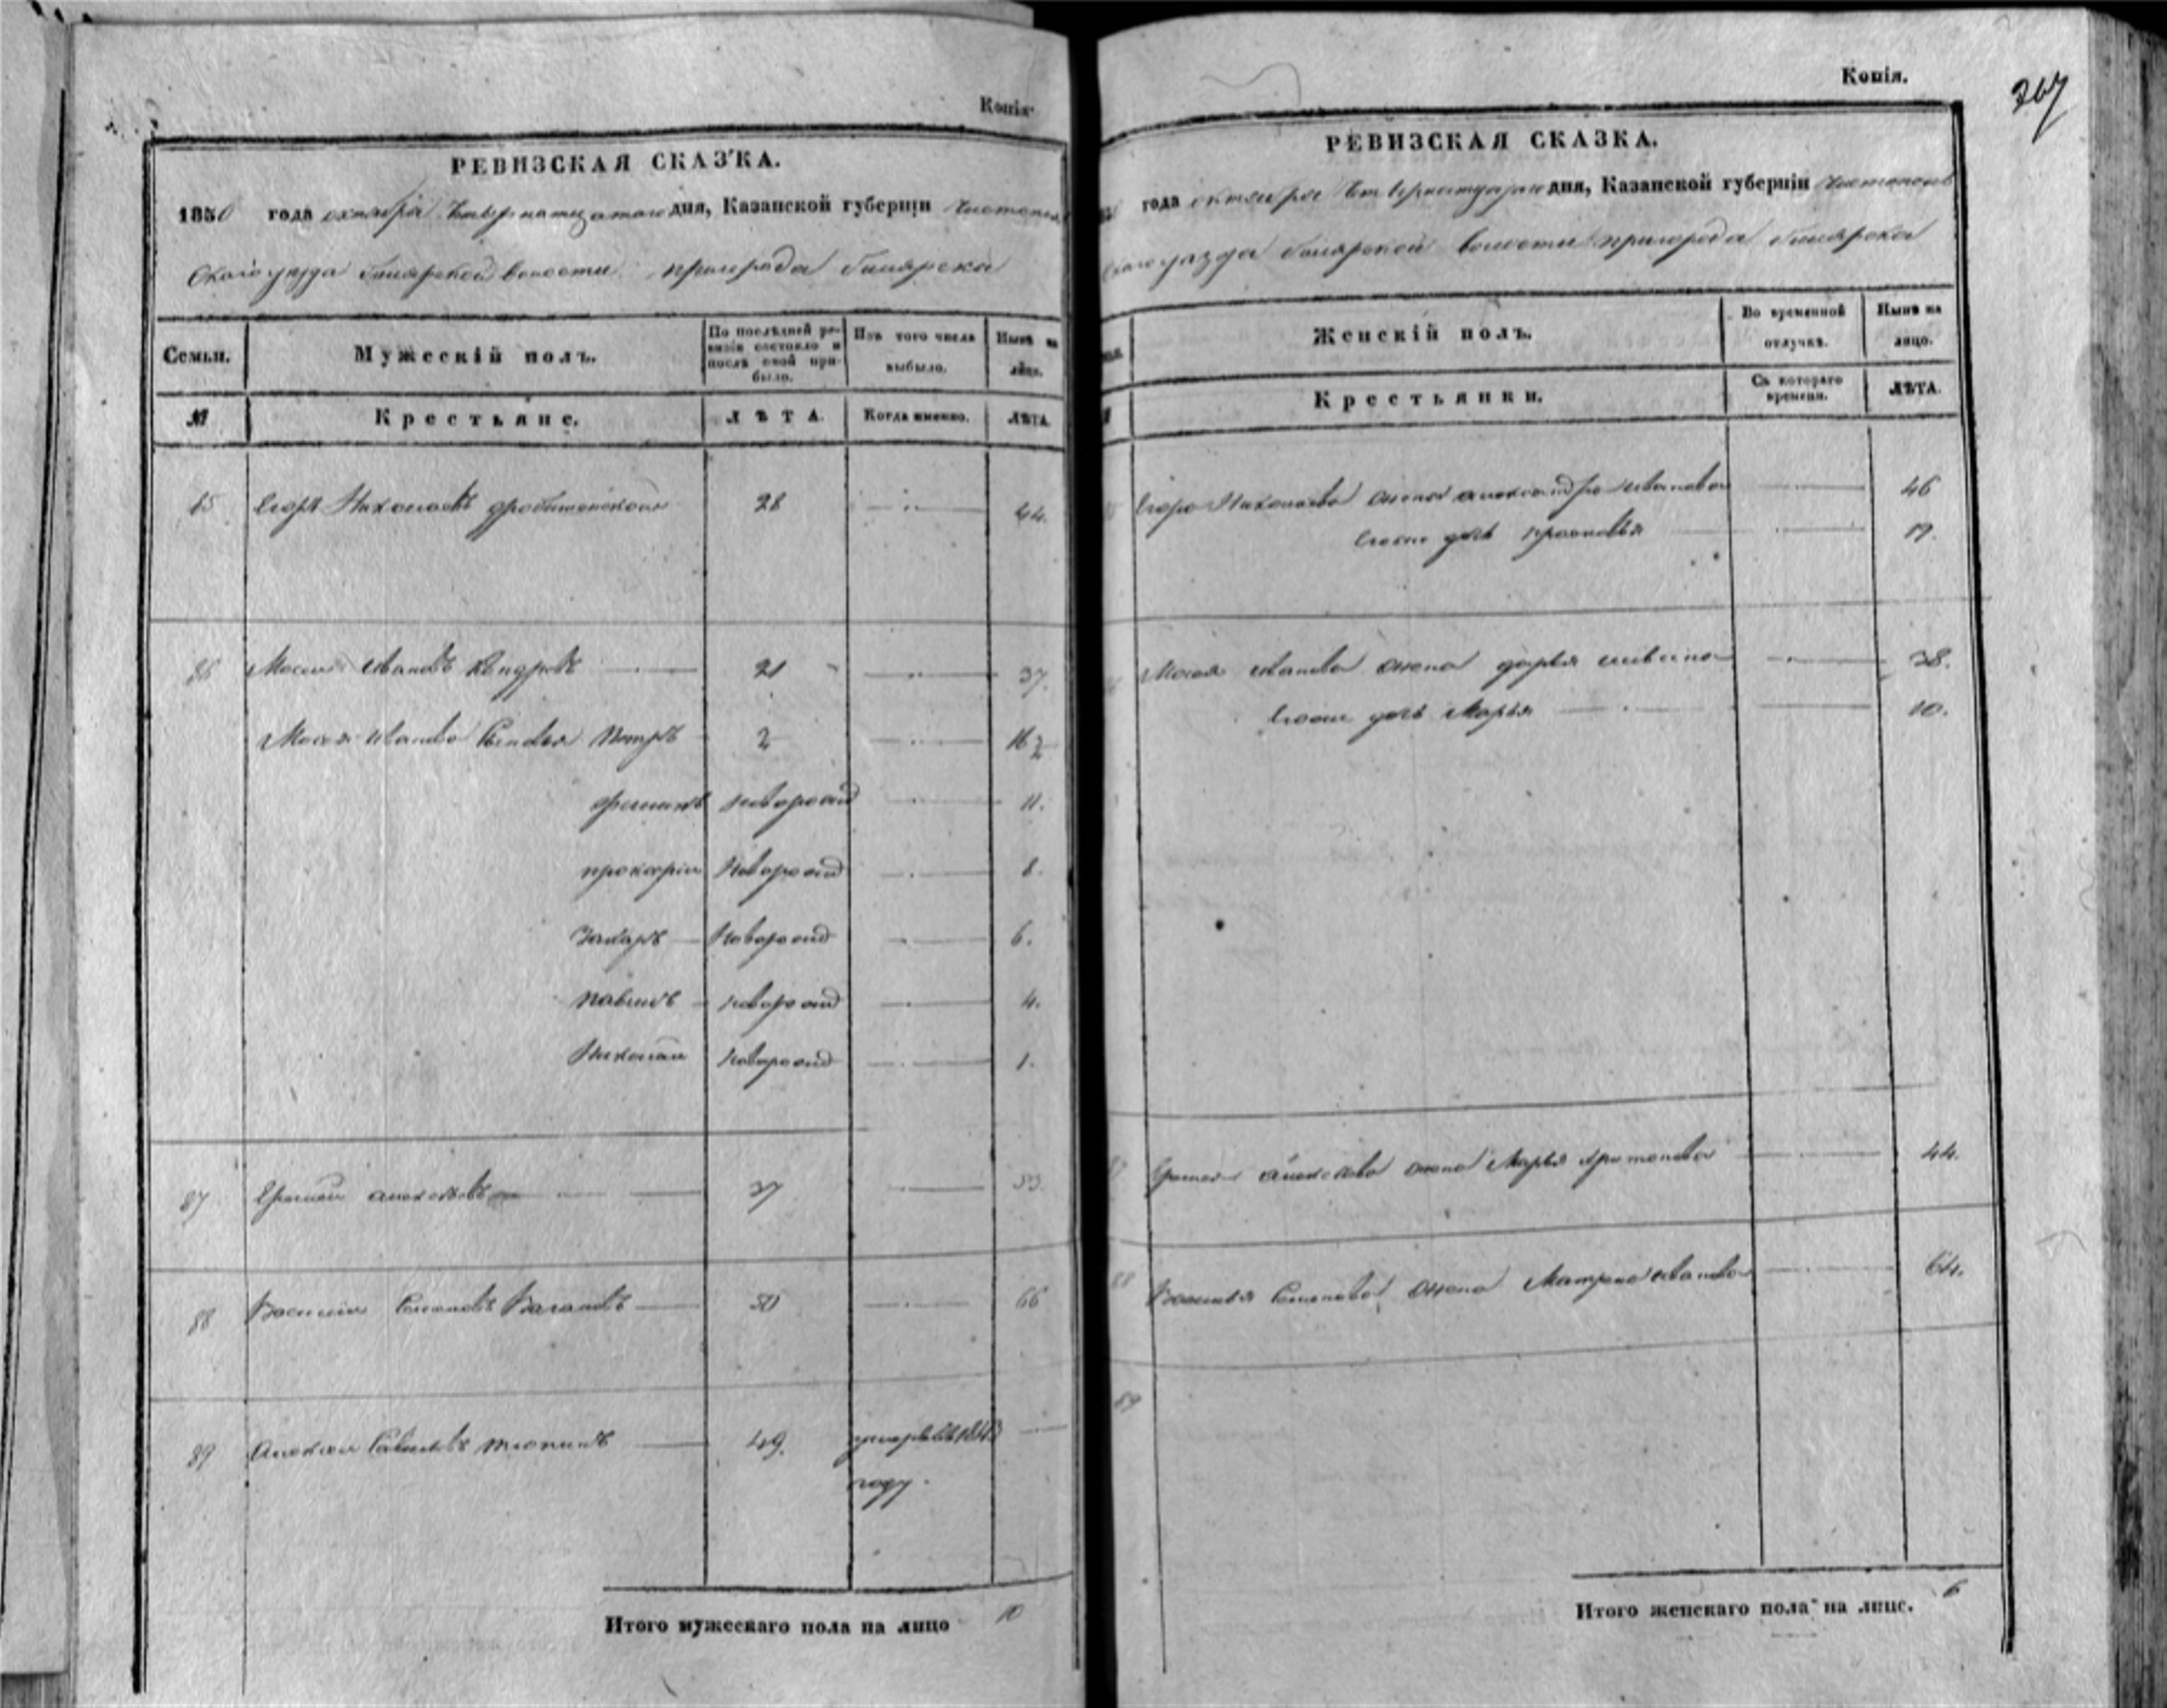 Копія.
РЕВИЗСКАЯ СКАЗКА.
1850 года октября четырнатцатаго дня, Казанской губерніи Чистополь
скаго уезда билярской волости пригорода билярска
Семьи. Мужескій полъ. По послѣдней ревизіи состояло и послѣ оной прибыло. Изъ того числа выбыло. Нынѣ на лицо.
№ Крестьяне. ЛѢТА. Когда именно. ЛѢТА.
85 Егоръ Николаевъ 28 44.
86 Мосей Ивановъ Кондровъ 21 37.
Мосея Иванова сыновья Петръ 2 16½
новорожд 11.
прокофій новорожд 8.
Захаръ новорожд 6.
павелъ новорожд 4.
Николай новорожд 1.
87 алексеевъ 37 53.
88 Василий Семеновъ 50 66
89 Алексей Савельевъ 49. умеръ въ 1843
году.
Итого мужескаго пола на лицо 10
Копія.
367
РЕВИЗСКАЯ СКАЗКА.
года октября четырнатцатаго дня, Казанской губерніи Чистополь
скаго уезда билярской волости пригорода билярска
Женскій полъ. Во временной отлучкѣ. Нынѣ на лицо.
Крестьянки. Съ котораго времени. ЛѢТА.
Егора Николаева жена александра Иванова 46
Егоже дочь прасковья 17.
Мосея Иванова жена дарья 38.
Егоже дочь Марья 10.
87 алексеева жена Марья 44.
88 Василья Семенова жена Матрена Иванова 64.
89
Итого женскаго пола на лице. 6